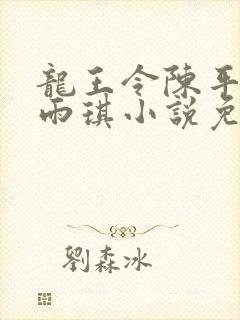 龍王令陳平
雨琪小說免
劉森冰